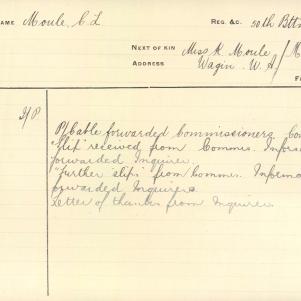 NAME Moule, C. L. REG. &C. 50th Btt
NEXT OF KIN Miss K. Moule
ADDRESS Wagin. W. A.
P/Cable forwarded Commissioners
"Slip" received from Commrs. Infor
forwarded Inquirer.
"Further slips" from Commrs. Informa
forwarded Inquirers
Letter of thanks from Inquirer